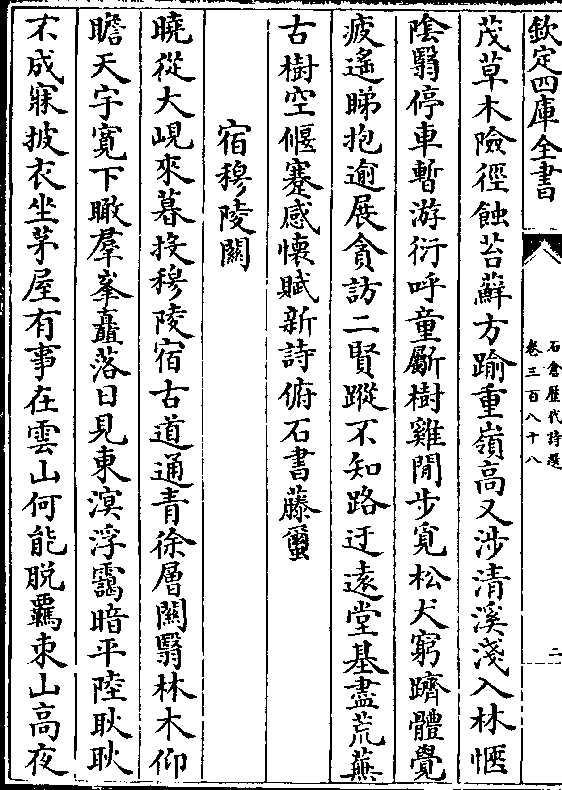 欽定四庫全書
石倉歷代詩選
卷三百八十八
二
茂草木險徑蝕苔蘚方踰重嶺高又涉清溪淺入林愜
隂翳停車暫游衍呼童斸樹雞閒步覓松犬窮躋體覺
疲遙睇抱逾展貪訪二賢蹤不知路迂遠堂基盡荒蕪
古樹空偃蹇感懷賦新詩俯石書藤蠒
宿穆陵關
曉從大峴來暮投穆陵宿古道通青徐層關翳林木仰
瞻天宇寛下瞰羣峯矗落日見東溟浮靄暗平陸耿耿
不成寐披衣坐茅屋有事在雲山何能脱羈束山高夜